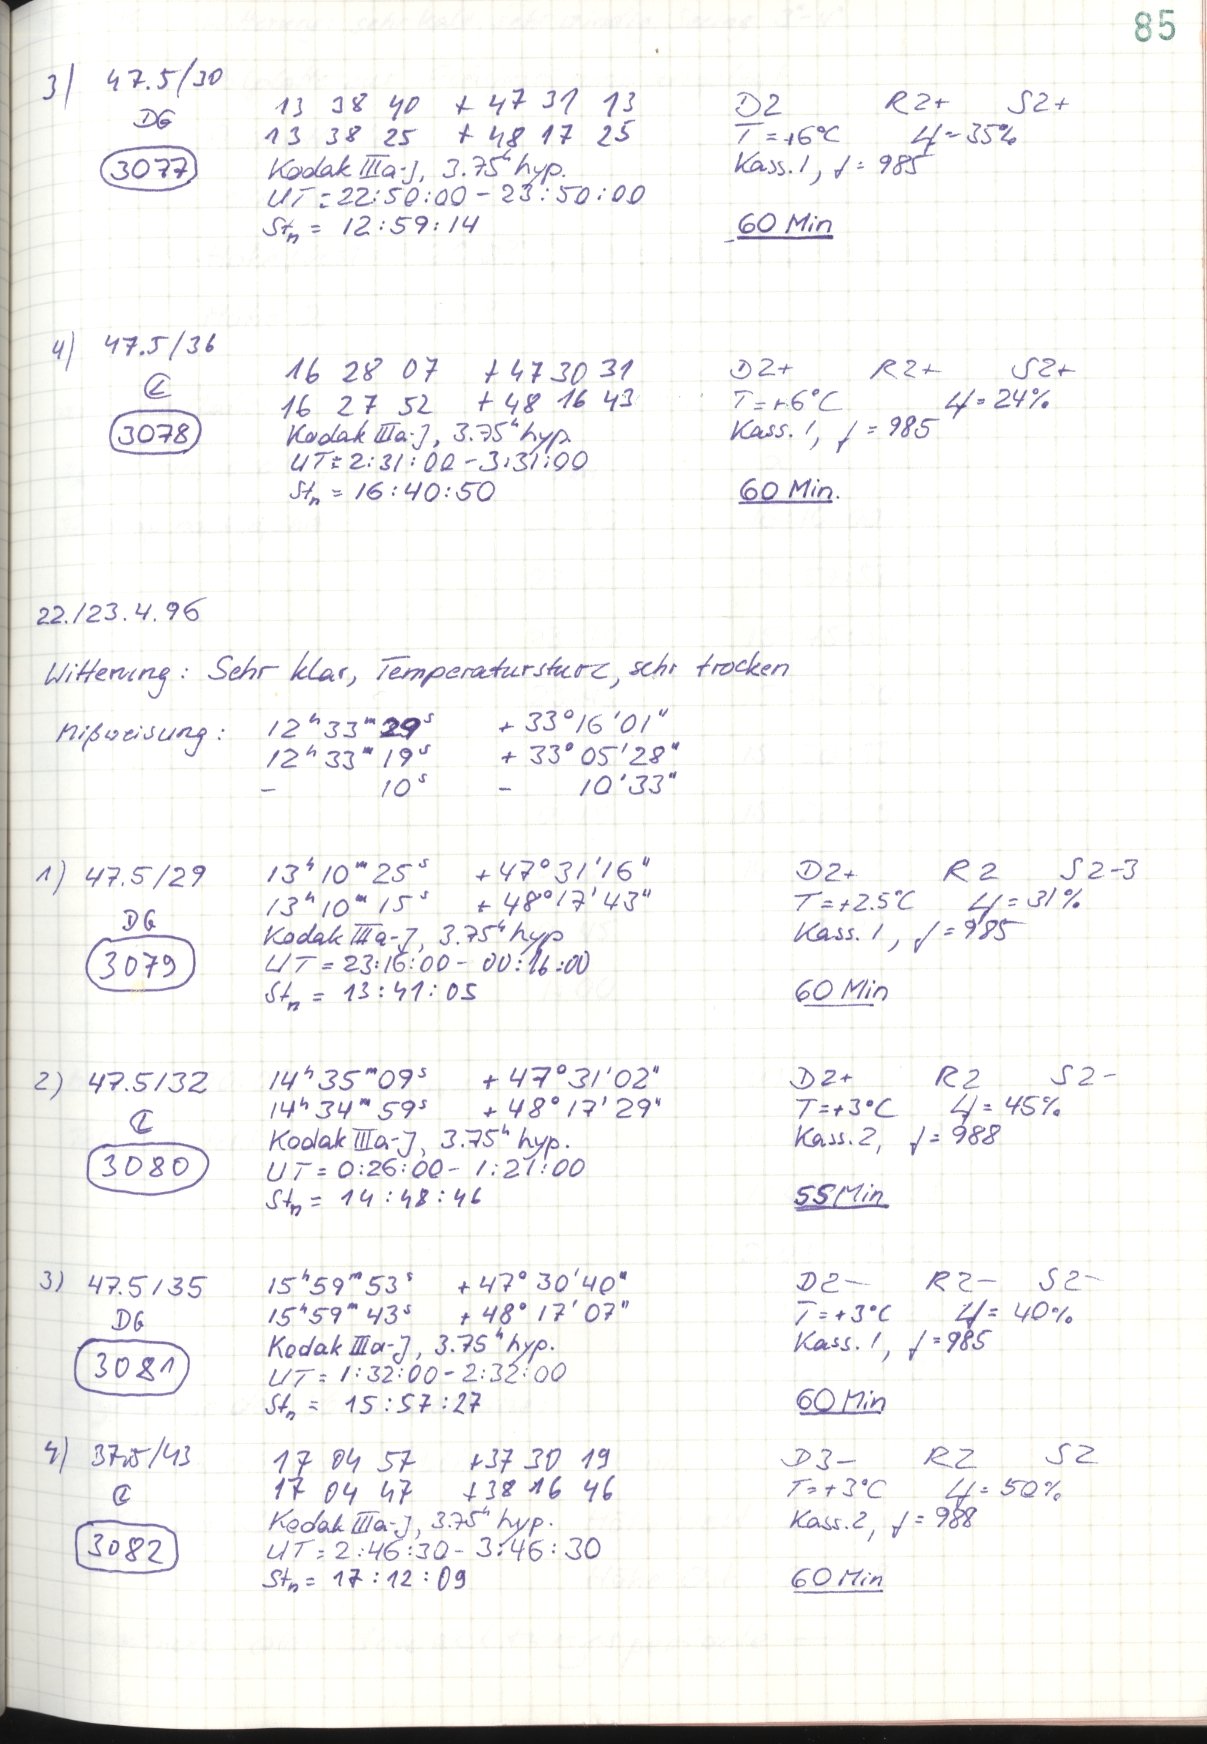 85
3) 47.5/30
DG
3077
13 38 40 + 47 31 13
13 38 25 + 48 17 25
Kodak IIIa-J, 3.75ʰ hyp.
UT = 22:50:00 - 23:50:00
Stₙ = 12:59:14
D2 R2+ S2+
T = +6°C φ = 35%
Kass. 1, f = 985
60 Min
4) 47.5/36
C
3078
16 28 07 + 47 30 31
16 27 52 + 48 16 43
Kodak IIIa-J, 3.75ʰ hyp.
UT = 2:31:00 - 3:31:00
Stₙ = 16:40:50
D2+ R2+ S2+
T = +6°C φ = 24%
Kass. 1, f = 985
60 Min.
22./23.4.96
Witterung: Sehr klar, Temperatursturz, sehr trocken
Mißweisung: 12ʰ33ᵐ29ˢ + 33°16'01"
12ʰ33ᵐ19ˢ + 33°05'28"
- 10ˢ - 10'33"
1) 47.5/29
DG
3079
13ʰ10ᵐ25ˢ + 47°31'16"
13ʰ10ᵐ15ˢ + 48°17'43"
Kodak IIIa-J, 3.75ʰ hyp
UT = 23:16:00 - 00:16:00
Stₙ = 13:41:05
D2+ R2 S2-3
T = +2.5°C φ = 31%
Kass. 1, f = 985
60 Min
2) 47.5/32
C
3080
14ʰ35ᵐ09ˢ + 47°31'02"
14ʰ34ᵐ59ˢ + 48°17'29"
Kodak IIIa-J, 3.75ʰ hyp.
UT = 0:26:00 - 1:21:00
Stₙ = 14:48:46
D2+ R2 S2-
T = +3°C φ = 45%
Kass. 2, f = 988
55 Min
3) 47.5/35
DG
3081
15ʰ59ᵐ53ˢ + 47°30'40"
15ʰ59ᵐ43ˢ + 48°17'07"
Kodak IIIa-J, 3.75ʰ hyp.
UT = 1:32:00 - 2:32:00
Stₙ = 15:57:27
D2- R2- S2-
T = +3°C φ = 40%
Kass. 1, f = 985
60 Min
4) 37.5/43
C
3082
17 04 57 +37 30 19
17 04 47 +38 16 46
Kodak IIIa-J, 3.75ʰ hyp.
UT = 2:46:30 - 3:46:30
Stₙ = 17:12:09
D3- R2 S2
T = +3°C φ = 50%
Kass. 2, f = 988
60 Min